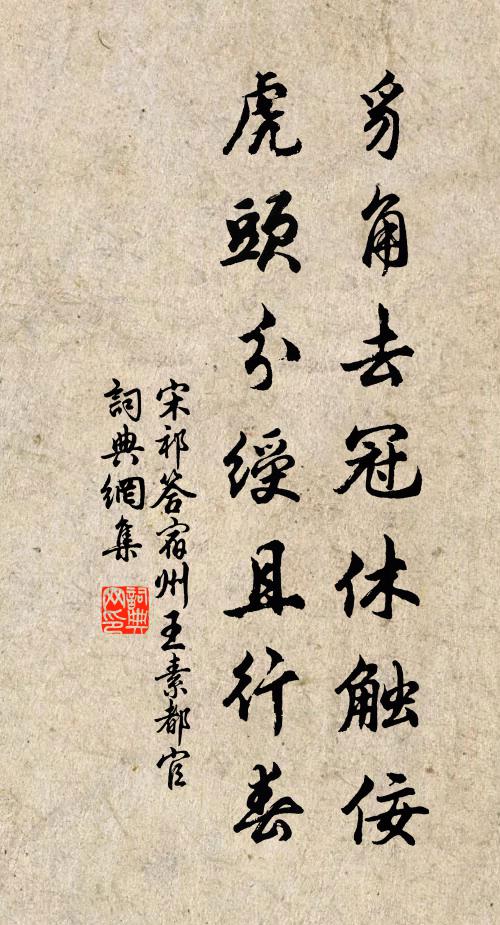 豸角去冠休触佞
虎頭分綬且行春
宋祁答宿州王素都官
詞典網集
詞典
网印